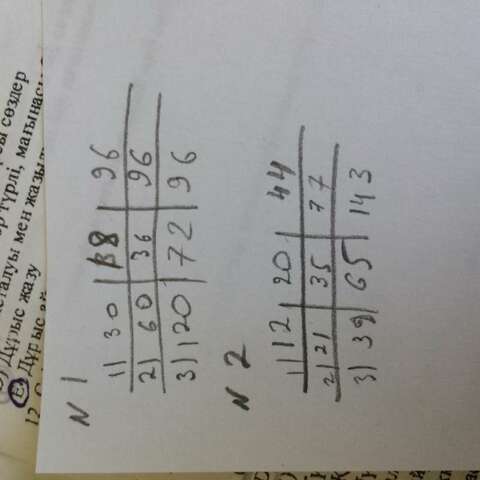 N 1
1) 30 | 18 | 96
2) 60 | 36 | 96
3) 120 | 72 | 96
N 2
1) 12 | 20 | 44
2) 21 | 35 | 77
3) 39 | 65 | 143
сөздер
түрлі, мағынасы
мен жазылуы
Дұрыс жазу
E) Дұрыс
12.